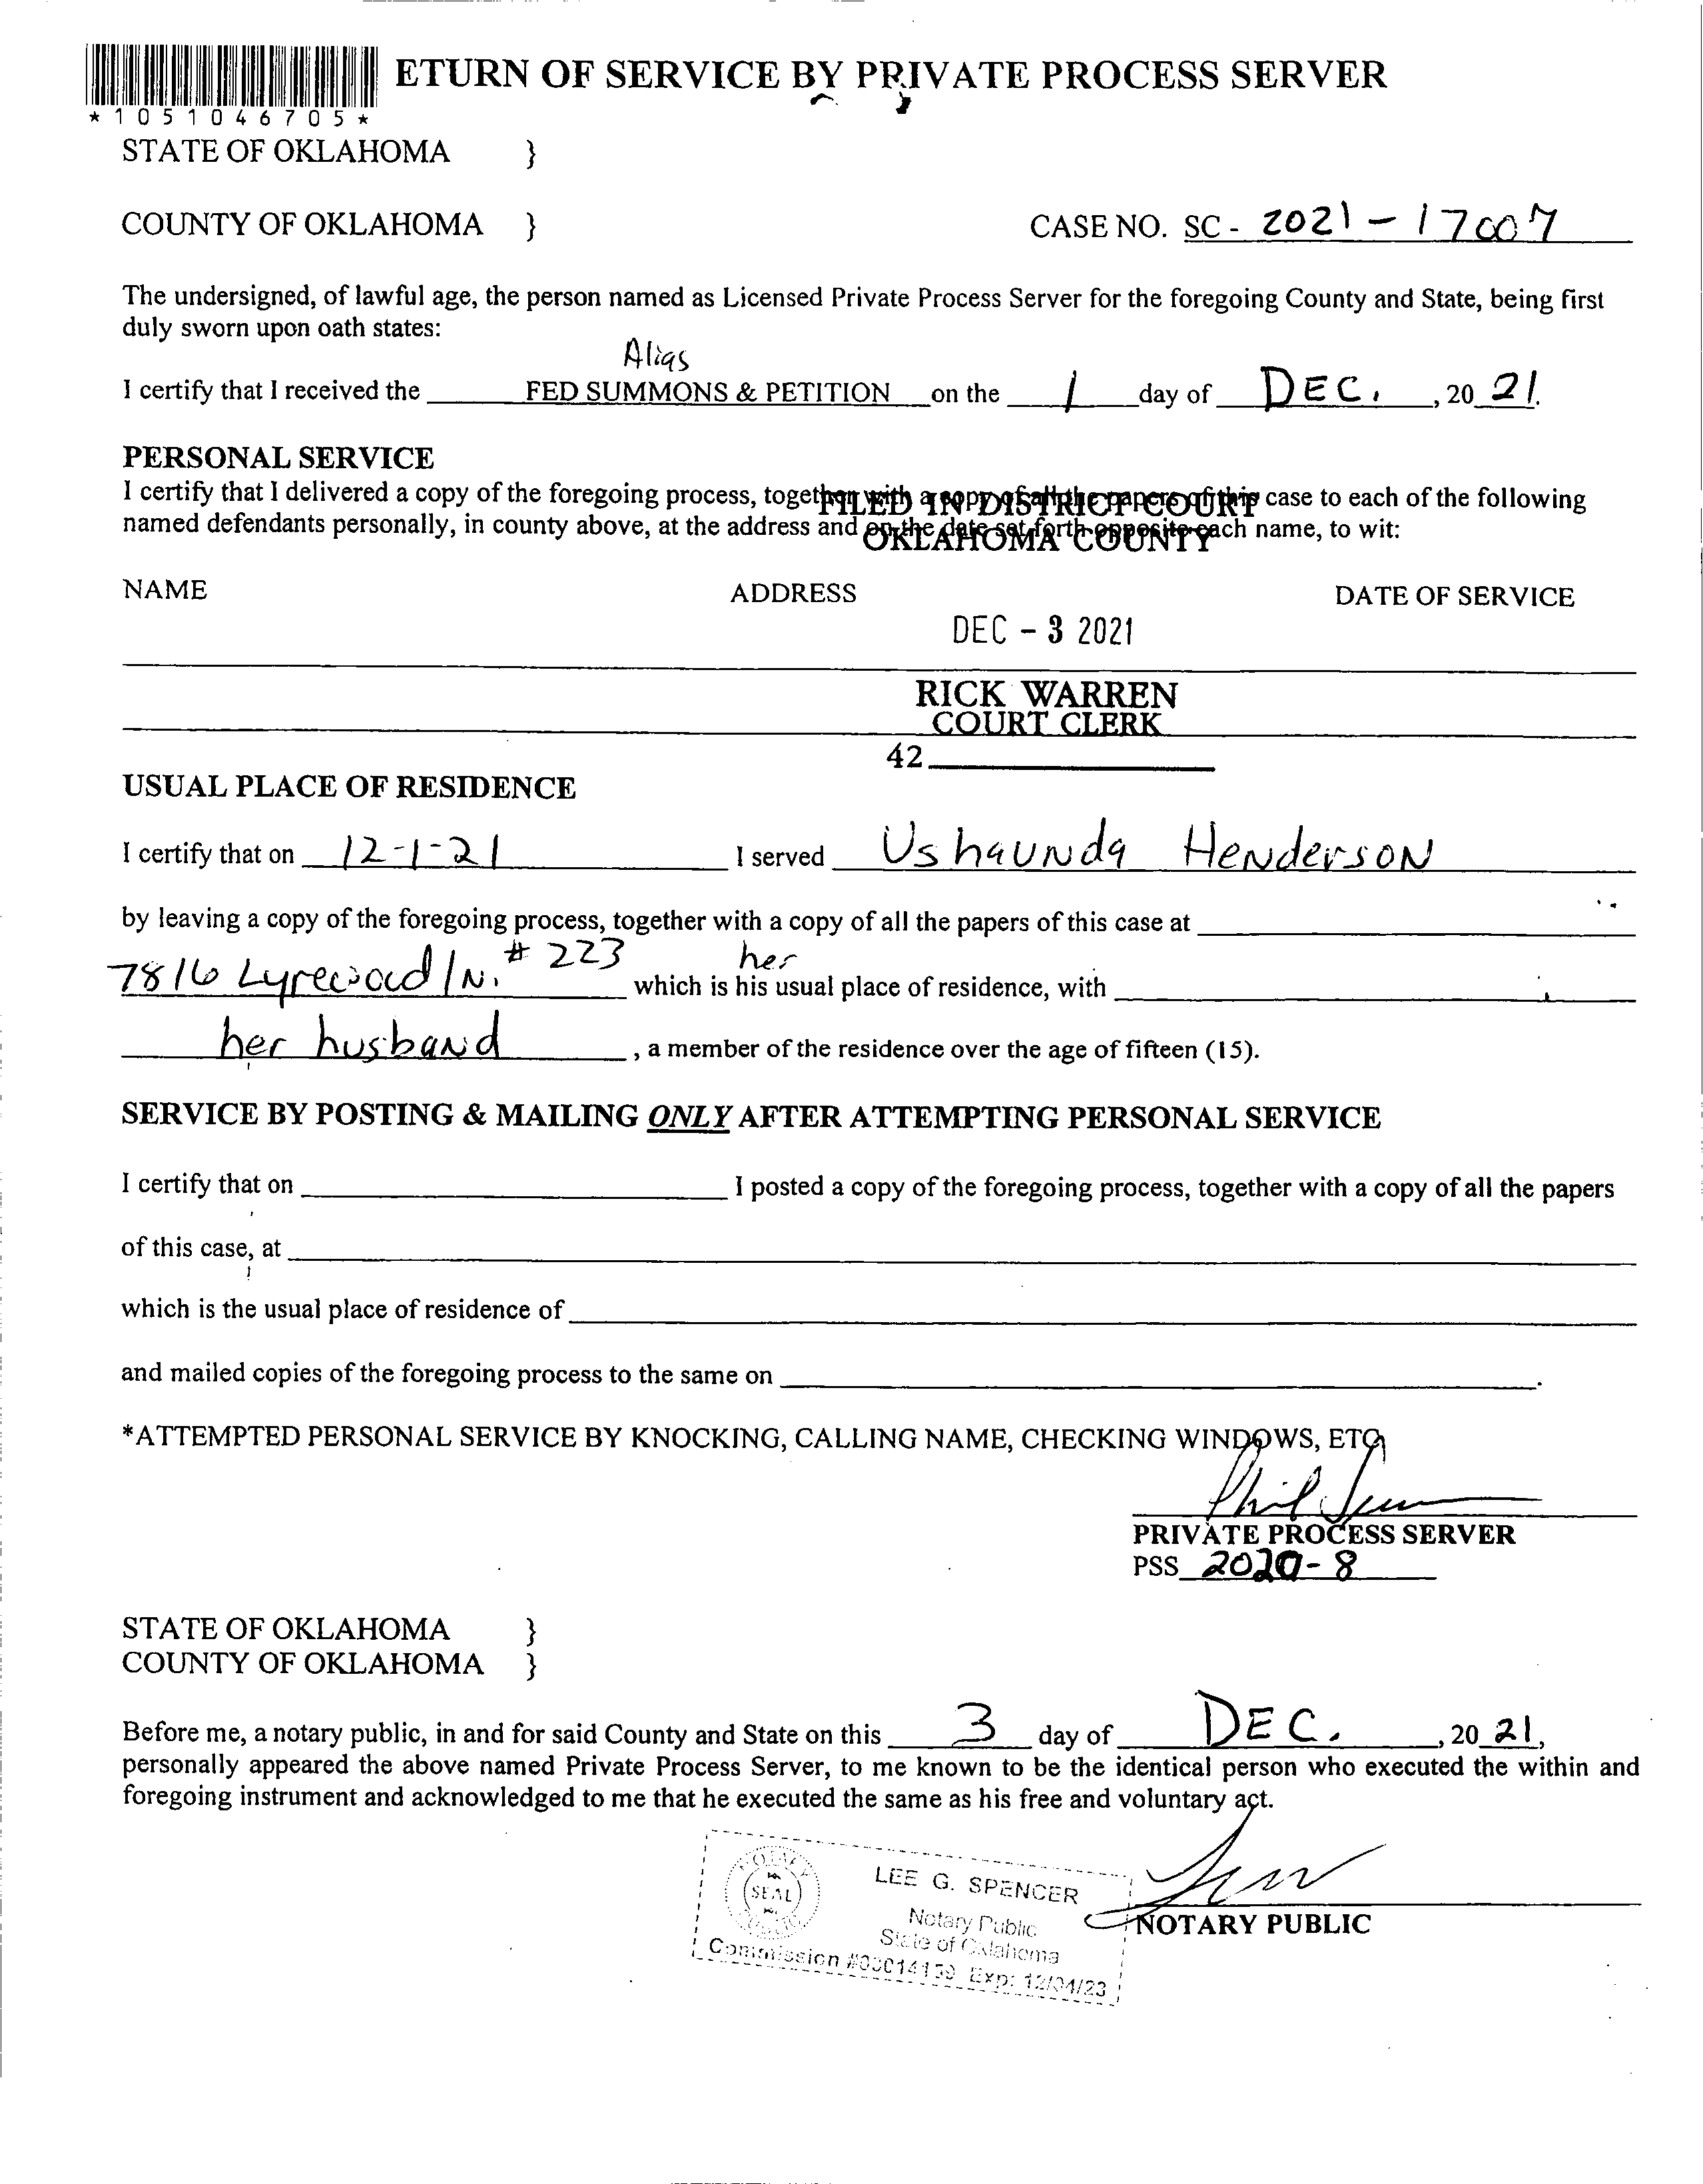 ETURN OF SERVICE BY PRIVATE PROCESS SERVER
*1051046705*
STATE OF OKLAHOMA }
COUNTY OF OKLAHOMA } CASE NO. SC - 2021 - 17007
The undersigned, of lawful age, the person named as Licensed Private Process Server for the foregoing County and State, being first
duly sworn upon oath states:
Alias
I certify that I received the FED SUMMONS & PETITION on the 1 day of DEC. , 20 21.
PERSONAL SERVICE
I certify that I delivered a copy of the foregoing process, together with a copy of all the papers of this case to each of the following
FILED IN DISTRICT COURT
named defendants personally, in county above, at the address and on the date set forth opposite each name, to wit:
OKLAHOMA COUNTY
NAME ADDRESS DATE OF SERVICE
DEC - 3 2021
RICK WARREN
COURT CLERK
42
USUAL PLACE OF RESIDENCE
I certify that on 12-1-21 I served Ushaunda Henderson
by leaving a copy of the foregoing process, together with a copy of all the papers of this case at
her
7816 Lyrewood ln. # 223 which is his usual place of residence, with
her husband , a member of the residence over the age of fifteen (15).
SERVICE BY POSTING & MAILING ONLY AFTER ATTEMPTING PERSONAL SERVICE
I certify that on I posted a copy of the foregoing process, together with a copy of all the papers
of this case, at
which is the usual place of residence of
and mailed copies of the foregoing process to the same on .
*ATTEMPTED PERSONAL SERVICE BY KNOCKING, CALLING NAME, CHECKING WINDOWS, ETC
PRIVATE PROCESS SERVER
PSS 2020-8
STATE OF OKLAHOMA }
COUNTY OF OKLAHOMA }
Before me, a notary public, in and for said County and State on this 3 day of DEC. , 20 21,
personally appeared the above named Private Process Server, to me known to be the identical person who executed the within and
foregoing instrument and acknowledged to me that he executed the same as his free and voluntary act.
SEAL
LEE G. SPENCER
Notary Public
State of Oklahoma
Commission Exp: 12/04/23
NOTARY PUBLIC